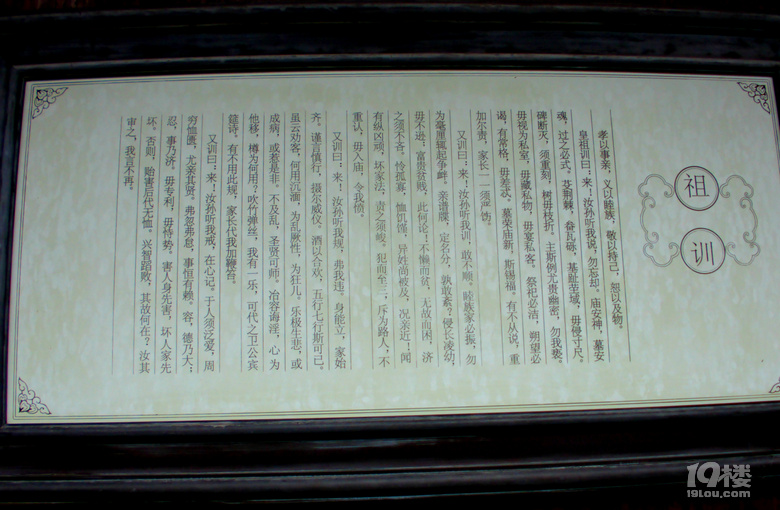 祖训
孝以事亲，义以睦族，敬以持己，恕以及物。
皇祖训曰：来！汝孙听我说，勿忘却。庙安神，墓安
魂，过之必式。芟荆棘，畚瓦砾，基趾茔域，毋侵寸尺。
碑断灭，须重刻，树毋枝折。主斯例尤贵幽密，勿我亵。
毋视为私室，毋藏私物，毋宴私客。祭祀必洁，朔望必
谒，有常格，毋差忒。墓荣庙新，斯锡福。有不从说，重
加尔责，家长一一须严饬。
又训曰：来！汝孙听我训，敢不顺。睦族家必振，勿
为毫厘辄起争衅。亲谱牒，定名分，孰敢紊？侵长凌幼，
毋不逊；富贵贫贱，此何论！不懒而贫，无故而困，济
之须不吝，怜孤寡，恤饥馑，异姓尚被及，况亲近！闻
有纵凶顽，坏家法，责之须峻。犯而至三，斥为路人，不
重认，毋入庙，令我愤。
又训曰：来！汝孙听我规，弗我违。身能立，家始
齐。谨言慎行，摄尔威仪。酒以合欢，五行七行斯可已。
虽云劝客，何用沉湎，为乱厥性，为狂儿。乐极生悲，或
成病，或惹是非。不及乱，圣贤可师。冶容诲淫，心为
他移，樽为何用？吹竹弹丝，我有一乐，可代之卫公宾
筵诗。有不用此规，家长代我加鞭笞。
又训曰：来！汝孙听我戒，在心记。于人须泛爱，周
穷恤匮，尤亲其贤。弗忽弗怠，事恒有赖。容，德乃大；
忍，事乃济，毋专利，毋恃势。害人身先害，坏人家先
坏。否则，贻害后代无恤，兴智蹈败，其故何在？汝其
审之，我言不再。
19楼
19lou.com